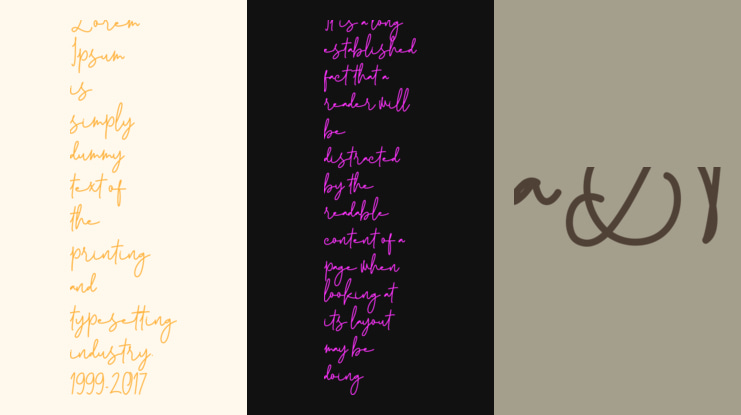 Lorem
Ipsum
is
simply
dummy
text of
the
printing
and
typesetting
industry.
1999-2017
It is a long
established
fact that a
reader will
be
distracted
by the
readable
content of a
page when
looking at
its layout
may be
doing